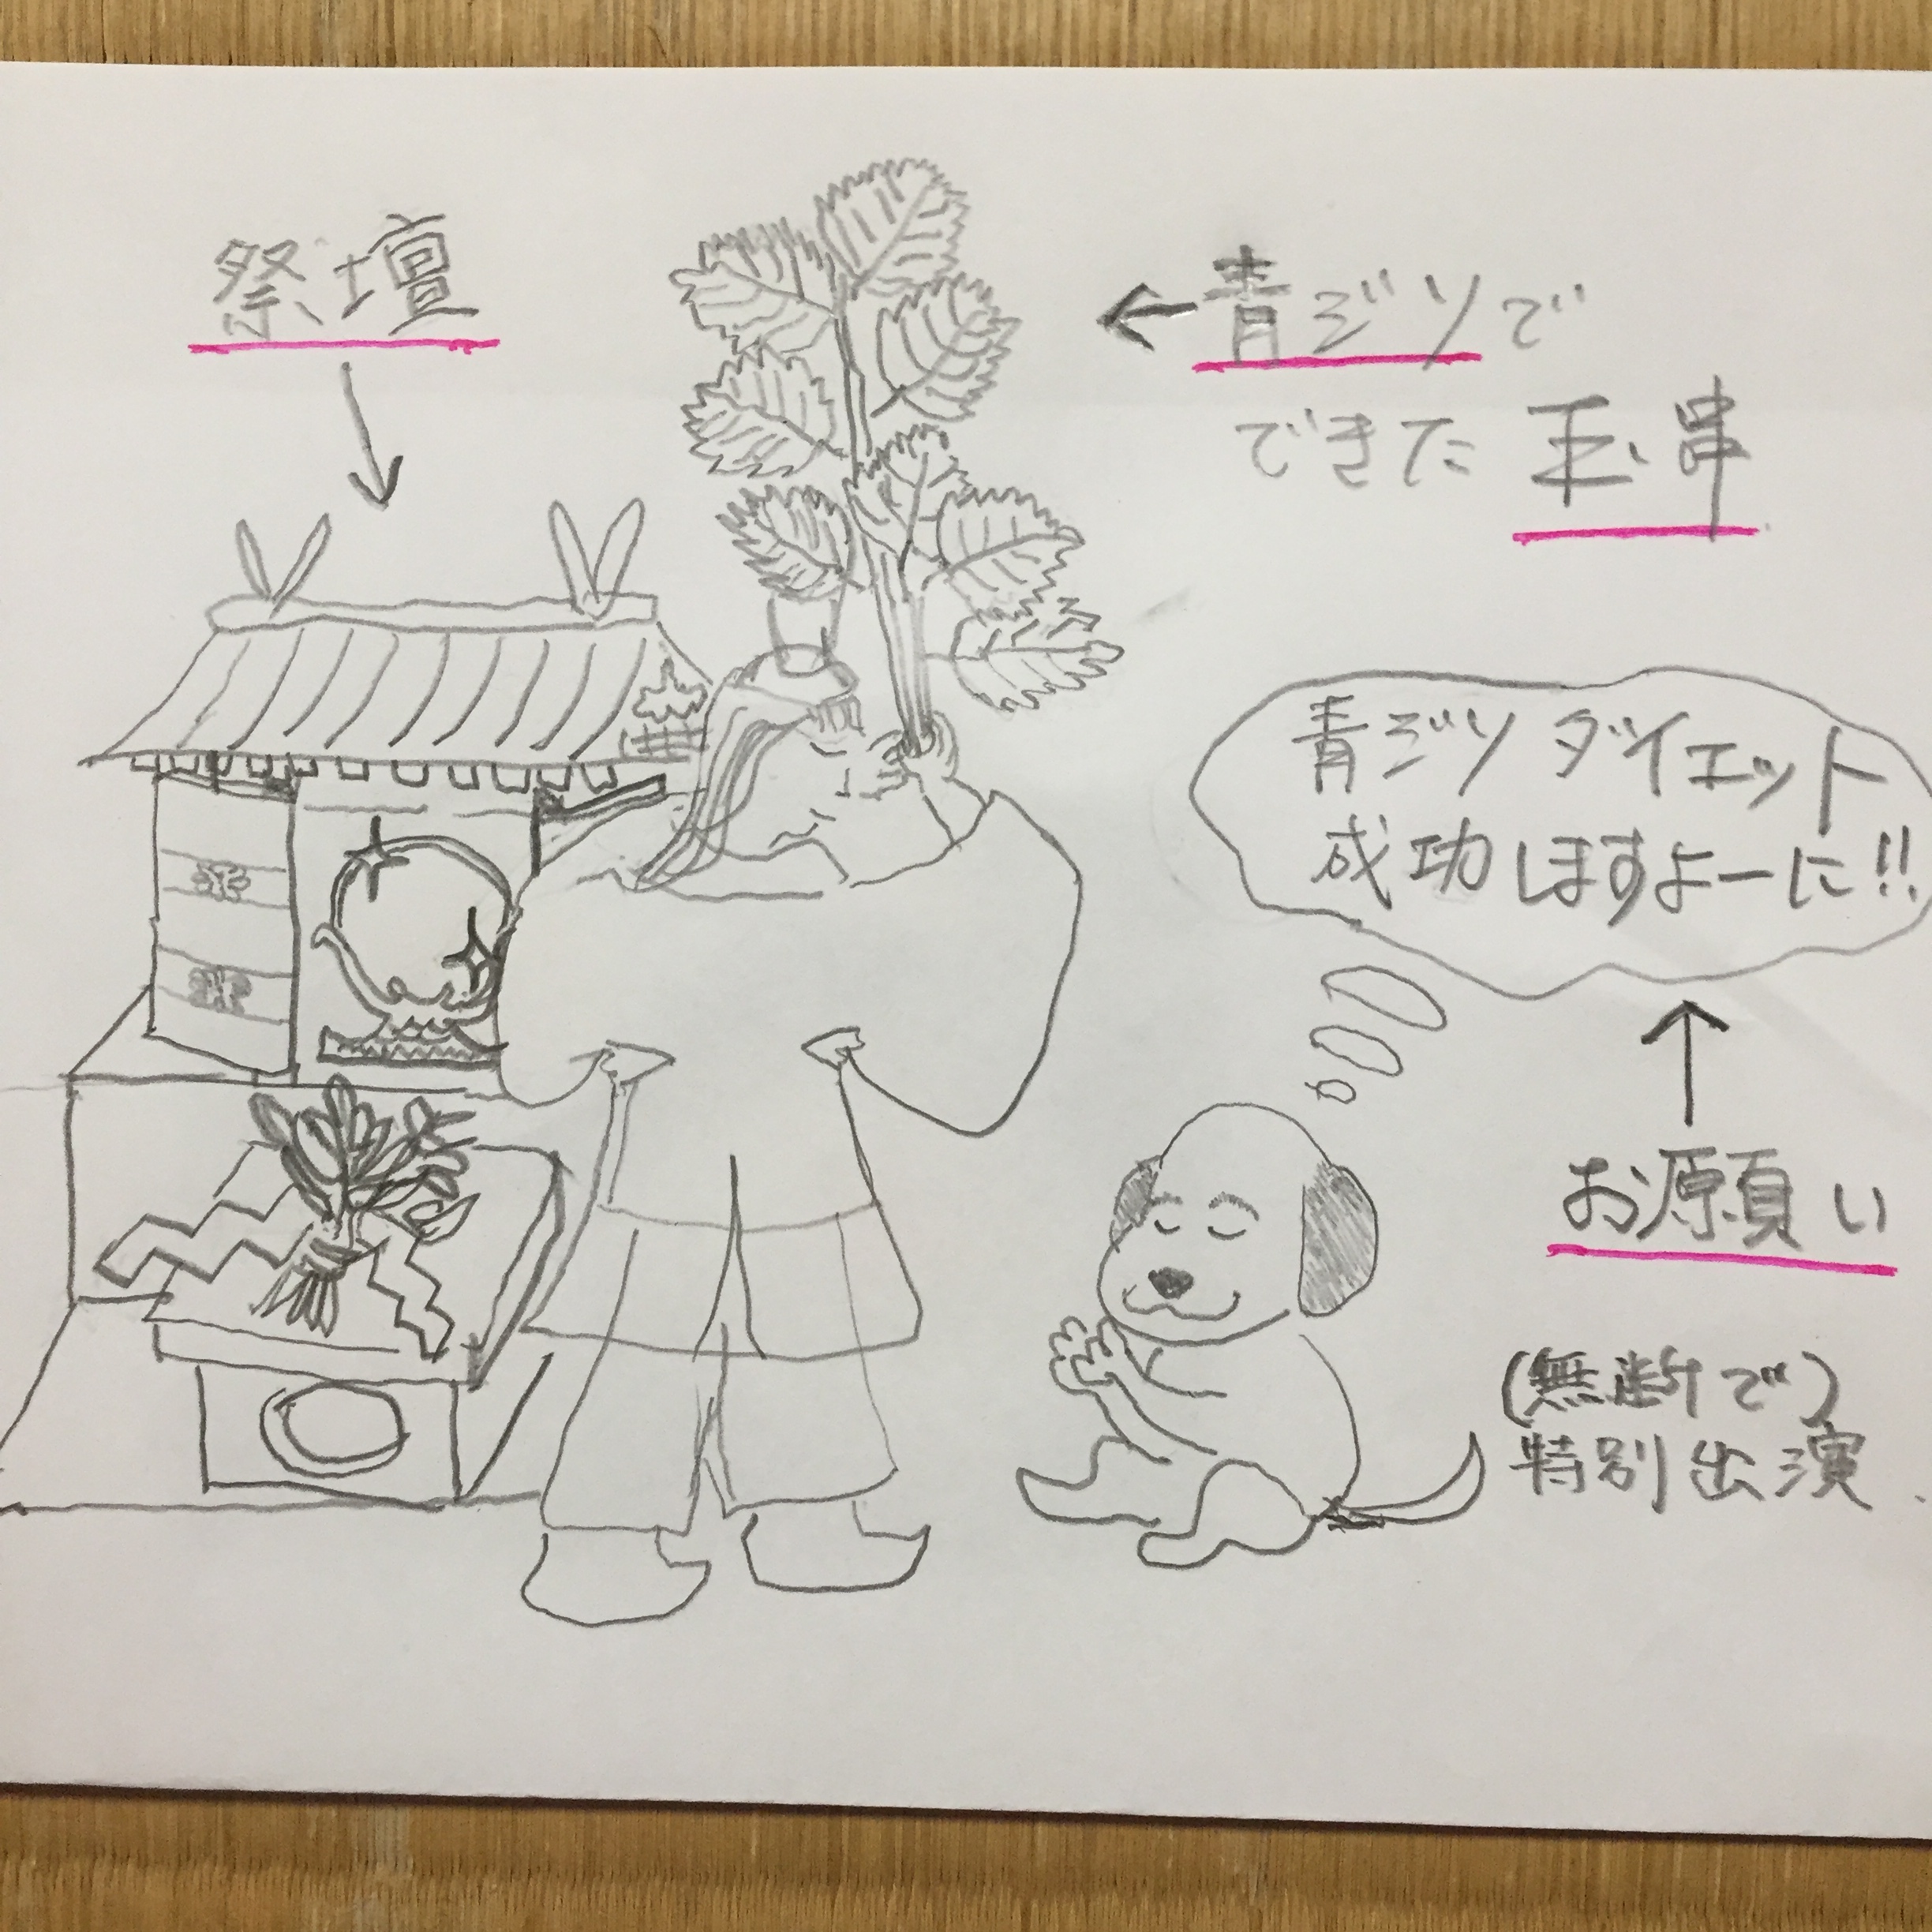 祭壇
青ジソで
できた玉串
青ジソダイエット
成功しますよーに!!
お願い
(無断で)
特別出演.